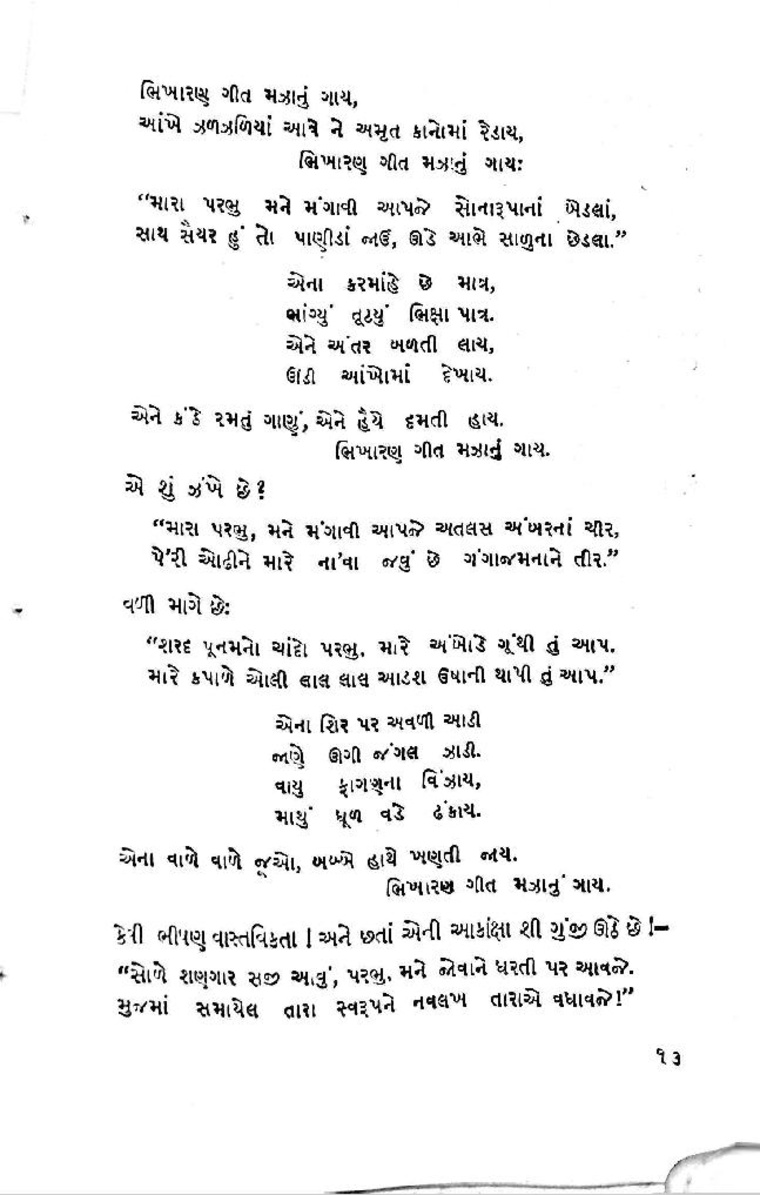 ભિખારણ ગીત મઝાનું ગાય,
આંખે ઝળઝળિયાં આવે ને અમૃત કાનોમાં રેડાય,
ભિખારણ ગીત મઝાનું ગાય:
“મારા પરભુ મને મંગાવી આપજે સોનારૂપાનાં બેડલાં,
સાથ સૈયર હું તો પાણીડાં જાઉં, ઊડે આભે સાળુના છેડલા.”
એના કરમાંહે છે માત્ર,
ભાંગ્યું તૂટયું ભિક્ષા પાત્ર.
એને અંતર બળતી લાય,
ઊડી આંખોમાં દેખાય.
એને કંઠે રમતું ગાણું, એને હૈયે દમતી હાય.
ભિખારણ ગીત મઝાનું ગાય.
એ શું ઝંખે છે?
“મારા પરભુ, મને મંગાવી આપજે અતલસ અંબરનાં ચીર,
પે'રી ઓઢીને મારે ના'વા જવું છે ગંગાજમનાને તીર.”
વળી માગે છે:
“શરદ પૂનમનો ચાંદો પરભુ, મારે અંબોડે ગૂંથી તું આપ.
મારે કપાળે ઓલી લાલ લાલ આડશ ઉષાની થાપી તું આપ.”
એના શિર પર અવળી આડી
જાણે ઊગી જંગલ ઝાડી.
વાયુ ફાગણના વિંઝાય,
માથું ધૂળ વડે ઢંકાય.
એના વાળે વાળે જૂઓ, બબ્બે હાથે ખણતી જાય.
ભિખારણ ગીત મઝાનું ગાય.
કેવી ભીષણ વાસ્તવિકતા! અને છતાં એની આકાંક્ષા શી ગુંજી ઊઠે છે!—
“સોળે શણગાર સજી આવું, પરભુ, મને જોવાને ધરતી પર આવજે.
મુજમાં સમાયેલ તારા સ્વરૂપને નવલખ તારાએ વધાવજે!”
૧૩